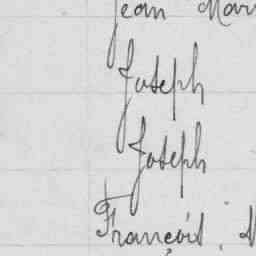 Jean Mari
Joseph
Joseph
François,